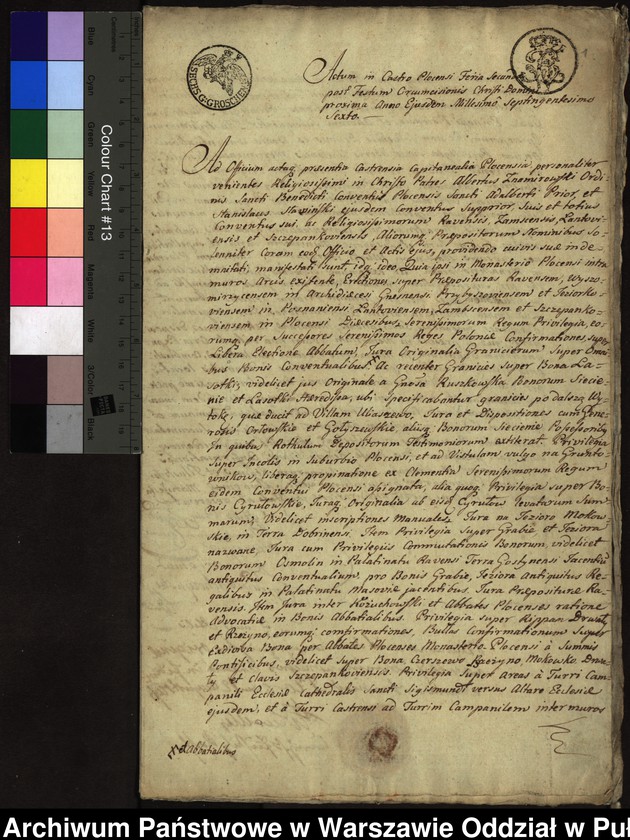 SECHS G: GROSCHEN
Actum in Castro Plocensi Feria Secunda
post Festum Circumcisionis Christi Domini
proxima Anno Ejusdem Millesimo Septingentesimo
Sexto.
Ad Officium actaq, præsentia Castrensia Capitanealia Plocensia, personaliter
venientes Religiosissimi in Christo Patres Albertus Znamirowski Ordi-
nis Sancti Benedicti Conventus Plocensis Sancti Adalberti Prior, et
Stanislaus ejusdem Conventus Supprior, Suis et totius
Conventus sui, ac Religiosissimorum Ravensis, Zamscensis, Łankovi-
ensis et Szczepankoviensis, Aliorumq, Præpositorum Nominibus So-
lenniter Coram eoq, Officio et Actis Ejus, providendo cuivis suæ inde-
mnitati, manifestati sunt, idq, ideo Quia ipsi in Monasterio Plocensi intra
muros Arcis existente, Erectiones super Præposituras Ravensem, Wyszo-
mirzycensem in Archidiæcesi Gnesnensi, Przybyszoviensem et Jeziorko-
viensem in Posnaniensi, Łankoviensem, Zambscensem et Szczepanko-
viensem in Plocensi Diæcesibus, Serenissimorum Regum Privilegia, eo-
rumq, per Successores Serenissimos Reges Poloniæ Confirmationes, super
Libera Electione Abbatum, Jura Originalia Graniciorum Super Omni-
bus Bonis Conventualibus x Ac recenter Granicies super Bona La-
sotki, videlicet jus Originale a Gnosa Kuszkowska Bonorum Siecie-
nie et Lasotki Hæredissa, ubi Specificabantur granicies po dalszą Wy-
tokę, quæ ducit ad Villam Uliaszewo, Jura et Dispositiones cum Gene-
rosis Orłowskie et Gołyszewskie, aliisq, Bonorum Siecienie Possessoribus
In quibus Rothulus Depositorum Testimoniorum extiterat. Privilegia
super Incolis in Suburbio Plocensi, et ad Vistulam vulgo na Grunto-
wnikow, liberaq, propinatione ex Clementia Serenissimorum Regum
eidem Conventui Plocensi assignata, alia quoq, Privilegia super Bo-
nis Cyrutowskie, Juraq, Originalia ab eisq, Cyrutow levatarum Sum-
marum, Videlicet inscriptiones manuales, Jura na Jezioro Mokow-
skie, in Terra Dobrinensi. Item Privilegia super Grabie et Jeziora
nazwane, Jura cum Privilegiis Commutationis Bonorum, videlicet
Bonorum Osmolin in Palatinatu Ravensi Terra Gostynensi Jacentiū
antiquitus Conventualium, pro Bonis Grabie, Jeziora Antiquitus Re-
galibus in Palatinatu Masoviæ jacentibus. Jura Præpositura Ra-
vensis. Item Jura inter Kożuchowski et Abbates Plocenses ratione
Advocatiæ in Bonis Abbatialibus. Privilegia super Rippam Drwały
et Rżezyno, eorumq, confirmationes, Bullas Confirmationum Super
Exdivisa Bona per Abbates Plocenses Monasterio Plocensi à Summis
Pontificibus, videlicet super Bona Czerwowo Mokowo Drwa-
ły et Clavis Szczepankoviensis. Privilegia Super Areas à Turri Cam-
panili Ecclesiæ Cathedralis Sancti Sigismundi versus Altare Ecclesiæ
ejusdem, et à Turri Castrensi ad Turrim Campanilem inter muros
x et Abbatialibus
Colour Chart #13
Blue
Cyan
Green
Yellow
Red
Magenta
White
3/Color
Black
Centimetres
Inches
Archiwum Państwowe w Warszawie Oddział w Puł